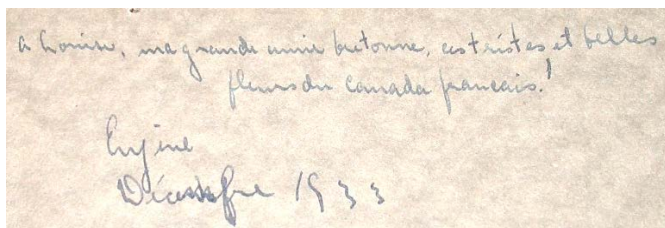 a Louise, ma grande amie bretonne, ces tristes et belles
fleurs du Canada francais!
Eugène
Décembre 1933